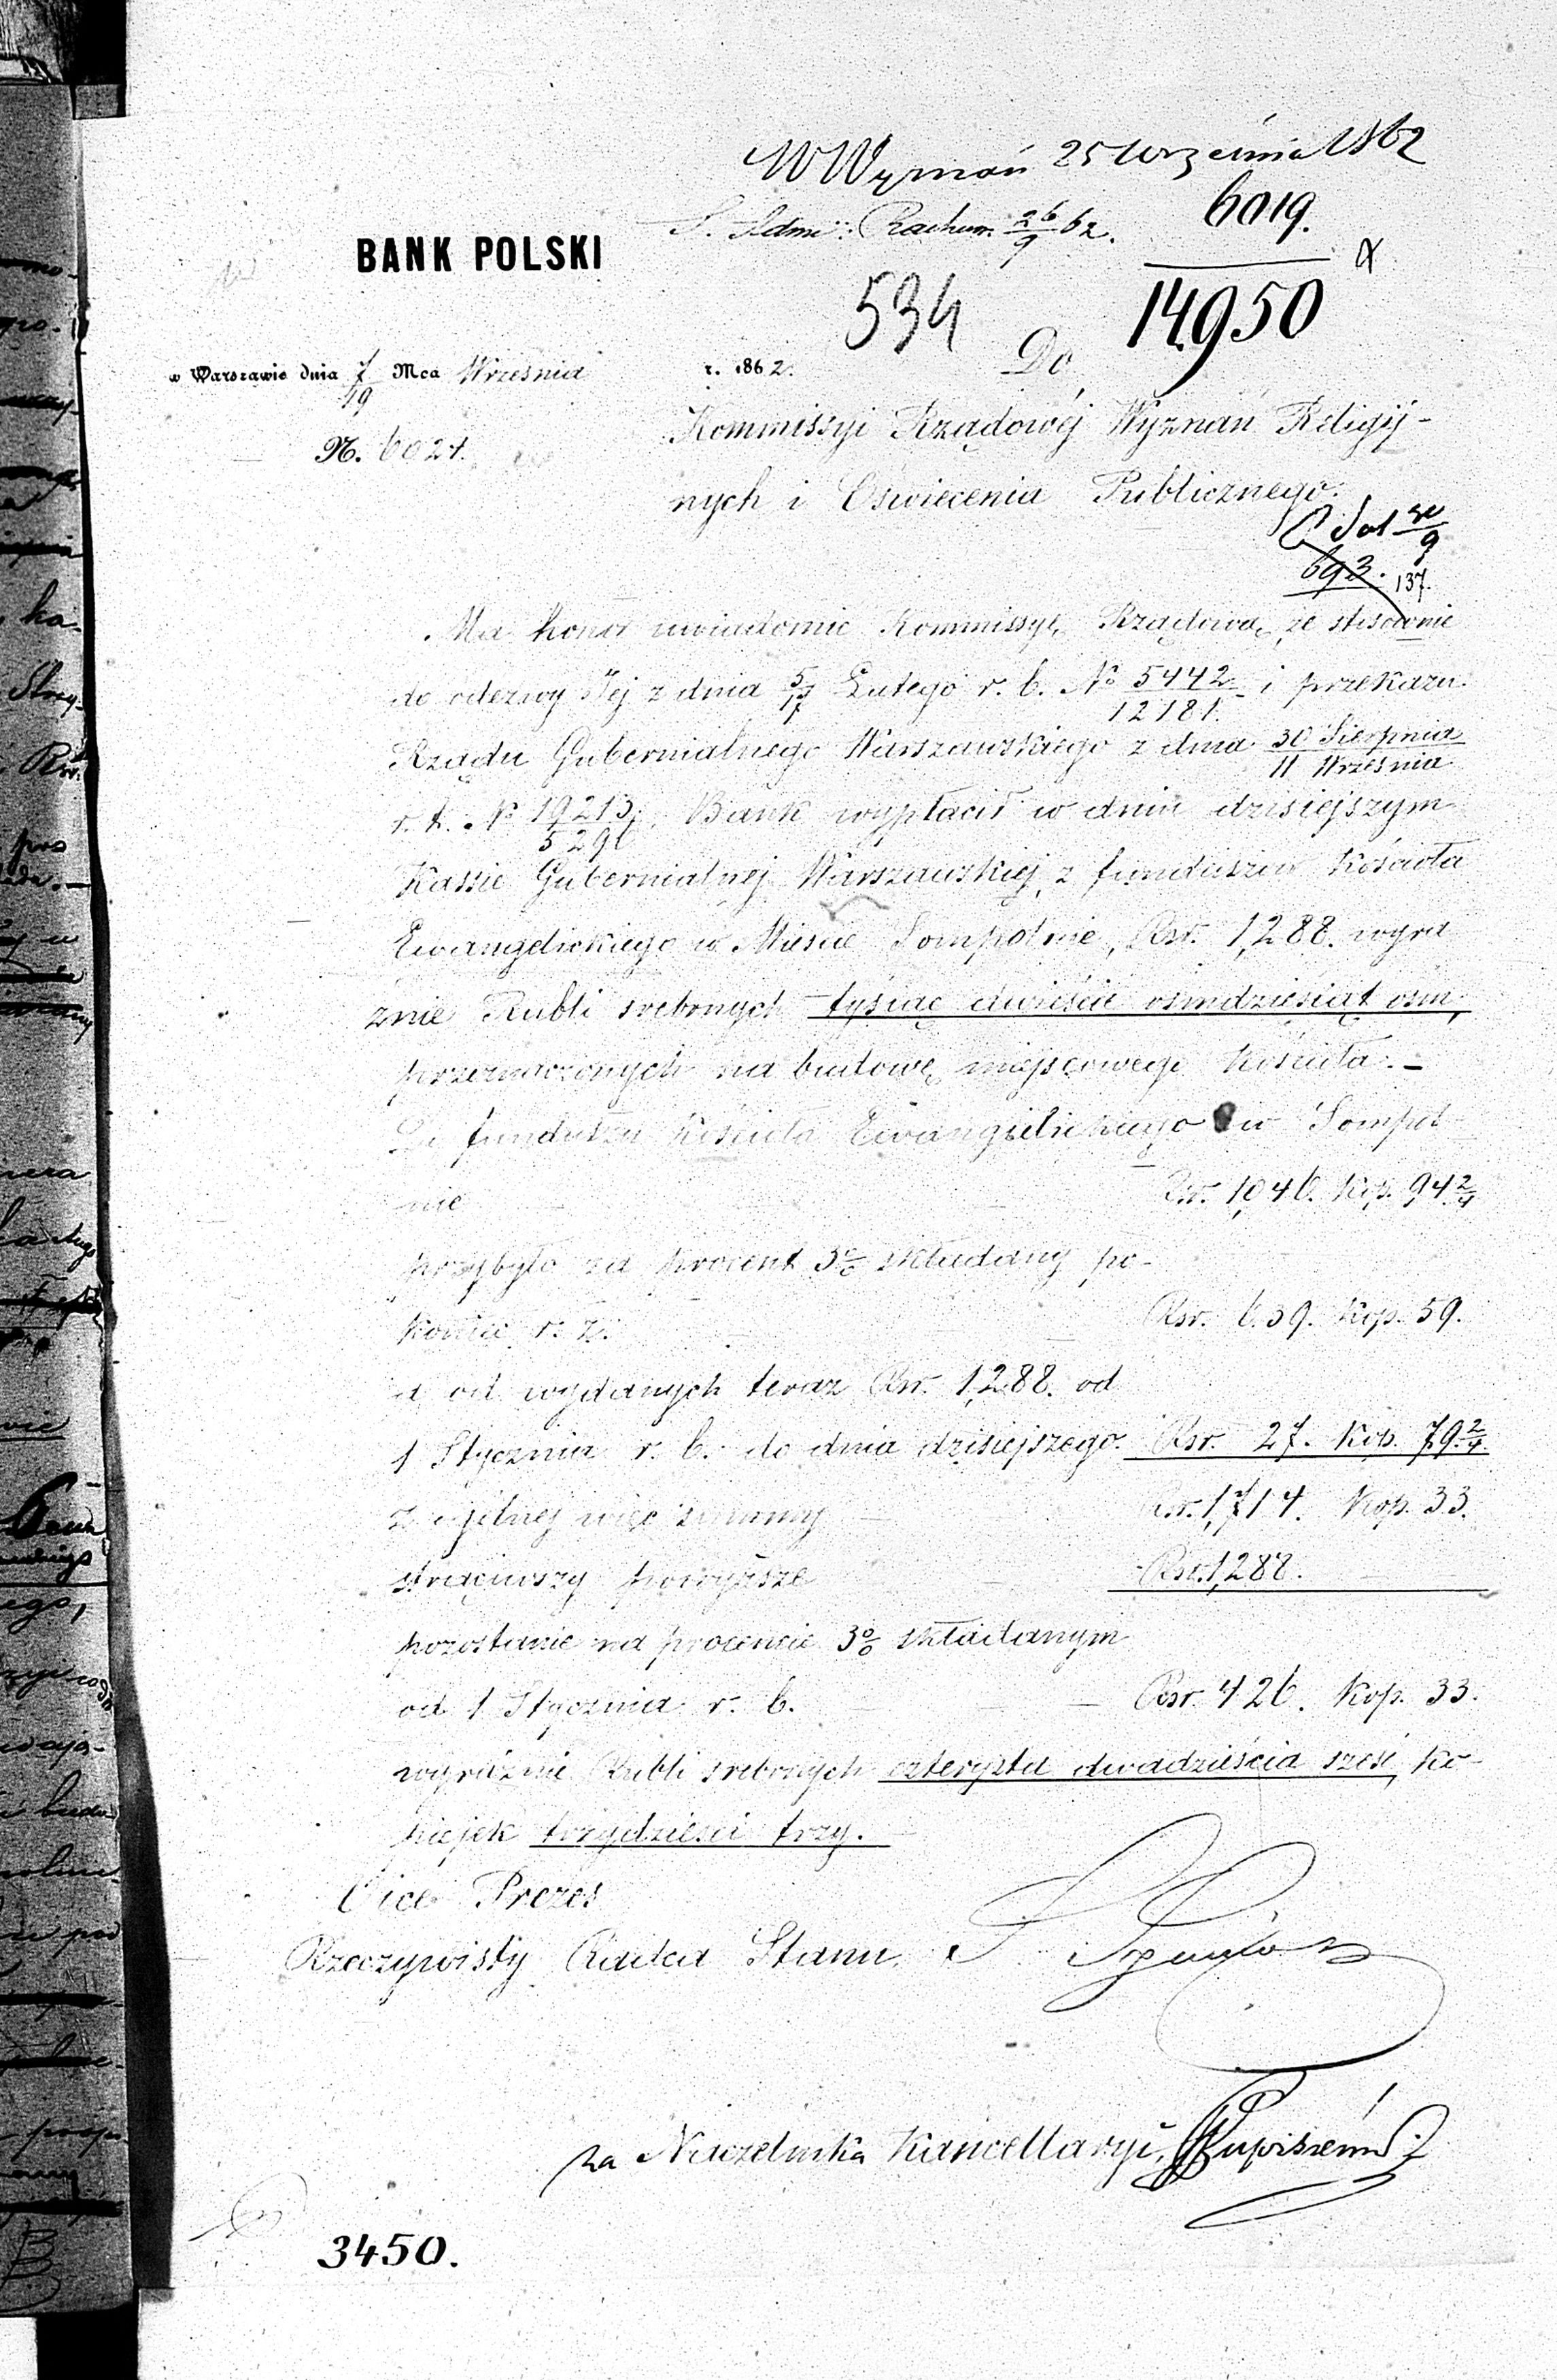 W Wyznań 25 Września 1862
S. Adm: Rachun. 26/9 62.
6019.
14950
534
BANK POLSKI
w Warszawie dnia 7/19 Mca Września r. 1862.
N. 6024.
Do
Kommissyi Rządowéj Wyznań Religij-
nych i Oświecenia Publicznego.
693. 137.
Ma honor uwiadomić Kommissyę Rządową, że stosownie
do odezwy Jej z dnia 5/17 Lutego r. b. No 5442/12181 i przekazu
Rządu Gubernialnego Warszawskiego z dnia 30 Sierpnia/11 Września
r. b. No 19213/5296, Bank wypłacił w dniu dzisiejszym
Kassie Gubernialnej Warszawskiej z funduszów Kościoła
Ewangelickiego w Mieście Sompolnie, Rsr. 1,288. wyra
źnie Rubli srebrnych tysiąc dwieście ośmdziesiąt ośm,
przeznaczonych na budowę miejscowego Kościoła. –
Do funduszu Kościoła Ewangielickiego w Sompol
nie Rsr. 1,046. Kop. 94 2/4
przybyło za procent 3% składany po-
koniec r. z. Rsr. 639. Kop. 59.
a od wydanych teraz Rsr. 1,288. od
1 Stycznia r. b. do dnia dzisiejszego. Rsr. 27. Kop. 79 2/4.
z ogólnej więc summy Rsr. 1,714. Kop. 33.
strąciwszy powyższe Rsr. 1,288.
pozostanie na procencie 3% składanym
od 1 Stycznia r. b. – Rsr. 426. Kop. 33.
wyraźnie Rubli srebrnych czterysta dwadzieścia sześć, ko-
piejek trzydzieści trzy.
Vice Prezes
Rzeczywisty Radca Stanu,
za Naczelnika Kancellaryi,
3450.